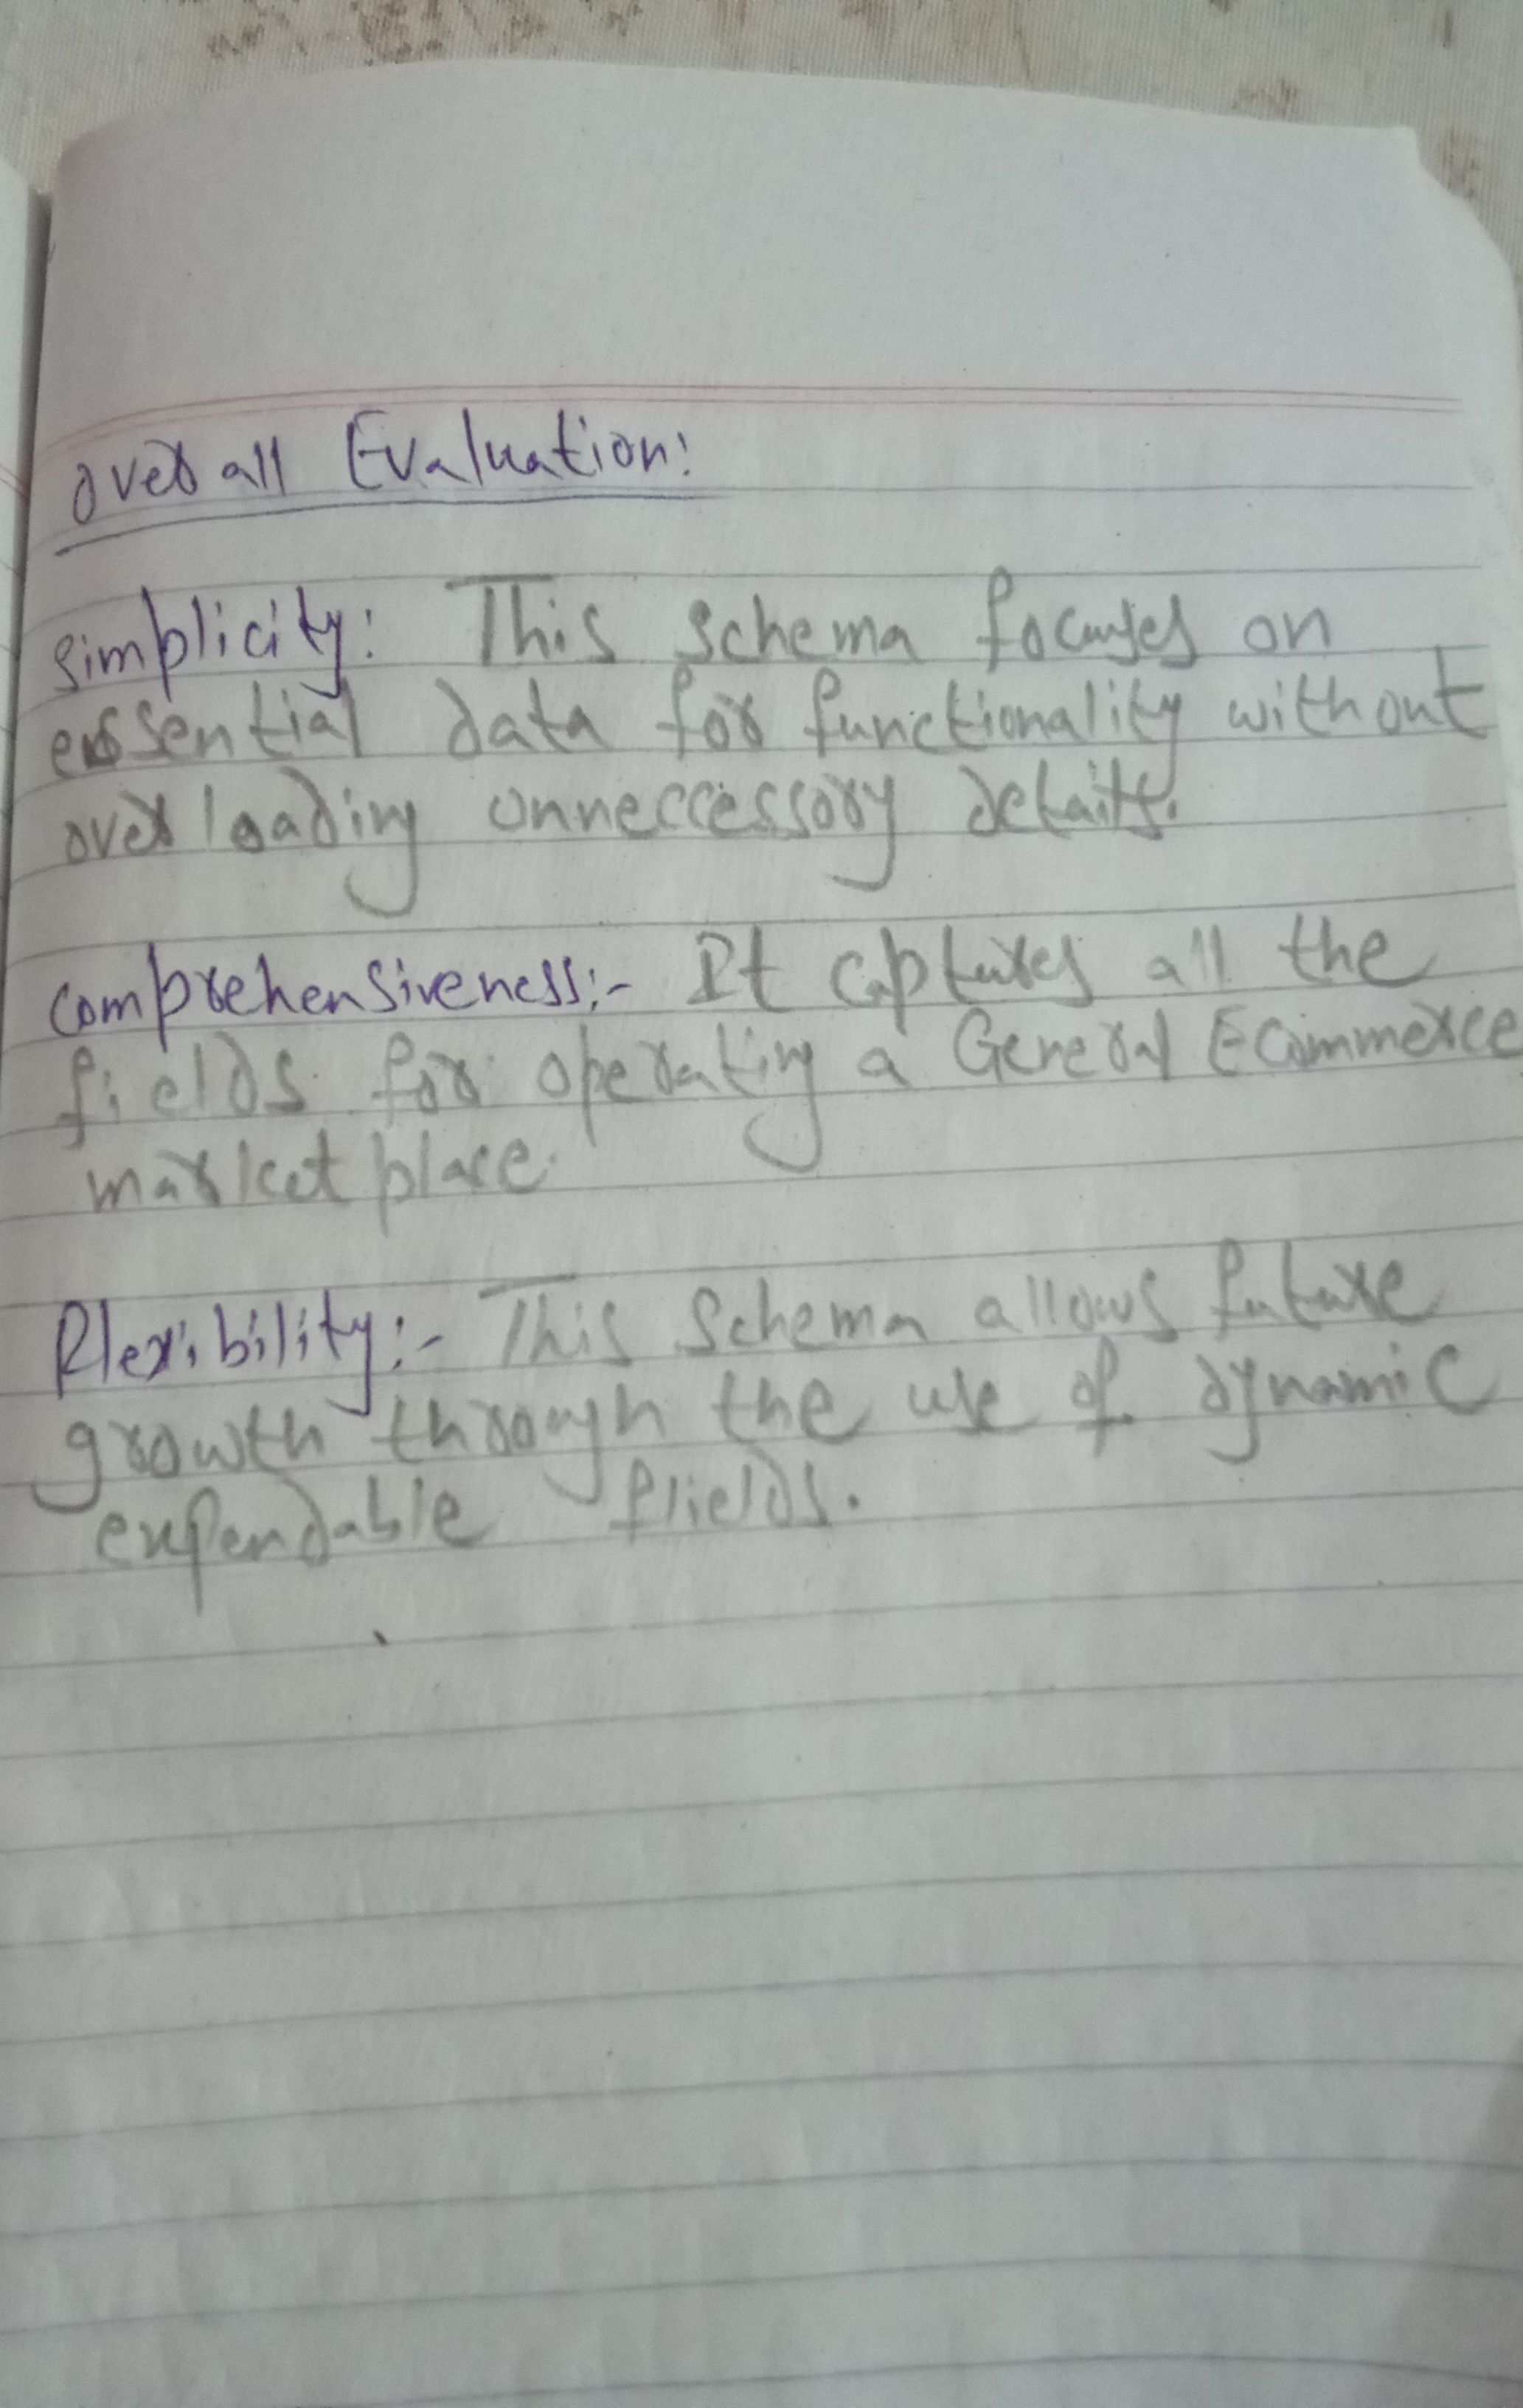 overall Evaluation:
simplicity: This schema focuses on
essential data for functionality without
overloading unneccessory details.
comprehensiveness:- It captures all the
fields for operating a General Ecommerce
marketplace.
Flexibility:- This Schema allows future
growth through the use of dynamic
expendable flields.